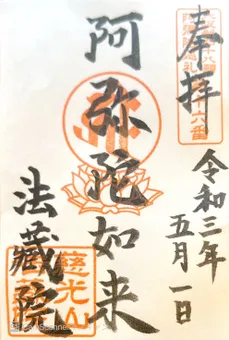 奉拝
令和三年
五月一日
阿弥陀如来
法蔵院
慈光山